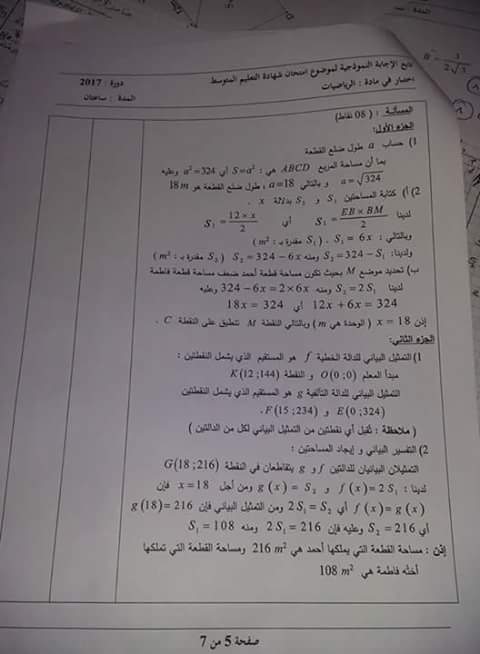 تابع الإجابة النموذجية لموضوع امتحان شهادة التعليم المتوسط دورة : 2017
اختبار في مادة : الرياضيات المدة : ساعتان
المسألة : ( 08 نقاط)
الجزء الأول:
1) حساب a طول ضلع القطعة
بما أن مساحة المربع ABCD هي : S=a² أي a²=324 وعليه
a=√324 و بالتالي a=18 ، طول ضلع القطعة هو 18 m
2) أ) كتابة المساحتين S₁ و S₂ بدلالة x .
لدينا S₁ = (EB×BM)/2 أي S₁ = (12×x)/2
وبالتالي : S₁ = 6x . ( S₁ مقدرة بـ m² )
ولدينا: S₂ = 324 − S₁ ومنه S₂ = 324 − 6x ( S₂ مقدرة بـ m² )
ب) تحديد موضع M بحيث تكون مساحة قطعة أحمد ضعف مساحة قطعة فاطمة
لدينا S₂ = 2S₁ ومنه 324 − 6x = 2×6x وعليه
12x + 6x = 324 أي 18x = 324
إذن x = 18 ( الوحدة هي m ) وبالتالي النقطة M تنطبق على النقطة C .
الجزء الثاني:
1) التمثيل البياني للدالة الخطية f هو المستقيم الذي يشمل النقطتين :
مبدأ المعلم O(0;0) و النقطة K(12;144)
التمثيل البياني للدالة التآلفية g هو المستقيم الذي يشمل النقطتين
E(0;324) و F(15;234) .
( ملاحظة : تُقبل أي نقطتين من التمثيل البياني لكل من الدالتين )
2) التفسير البياني و إيجاد المساحتين :
التمثيلان البيانيان للدالتين f و g يتقاطعان في النقطة G(18;216)
لدينا : f(x)=2S₁ و g(x) = S₂ ومن أجل x=18 فإن
f(x)=g(x) أي 2S₁=S₂ ومن التمثيل البياني فإن g(18)=216
أي S₂=216 وعليه فإن 2S₁=216 ومنه S₁=108
إذن : مساحة القطعة التي يملكها أحمد هي 216 m² ومساحة القطعة التي تملكها
أخته فاطمة هي 108 m²
صفحة 5 من 7